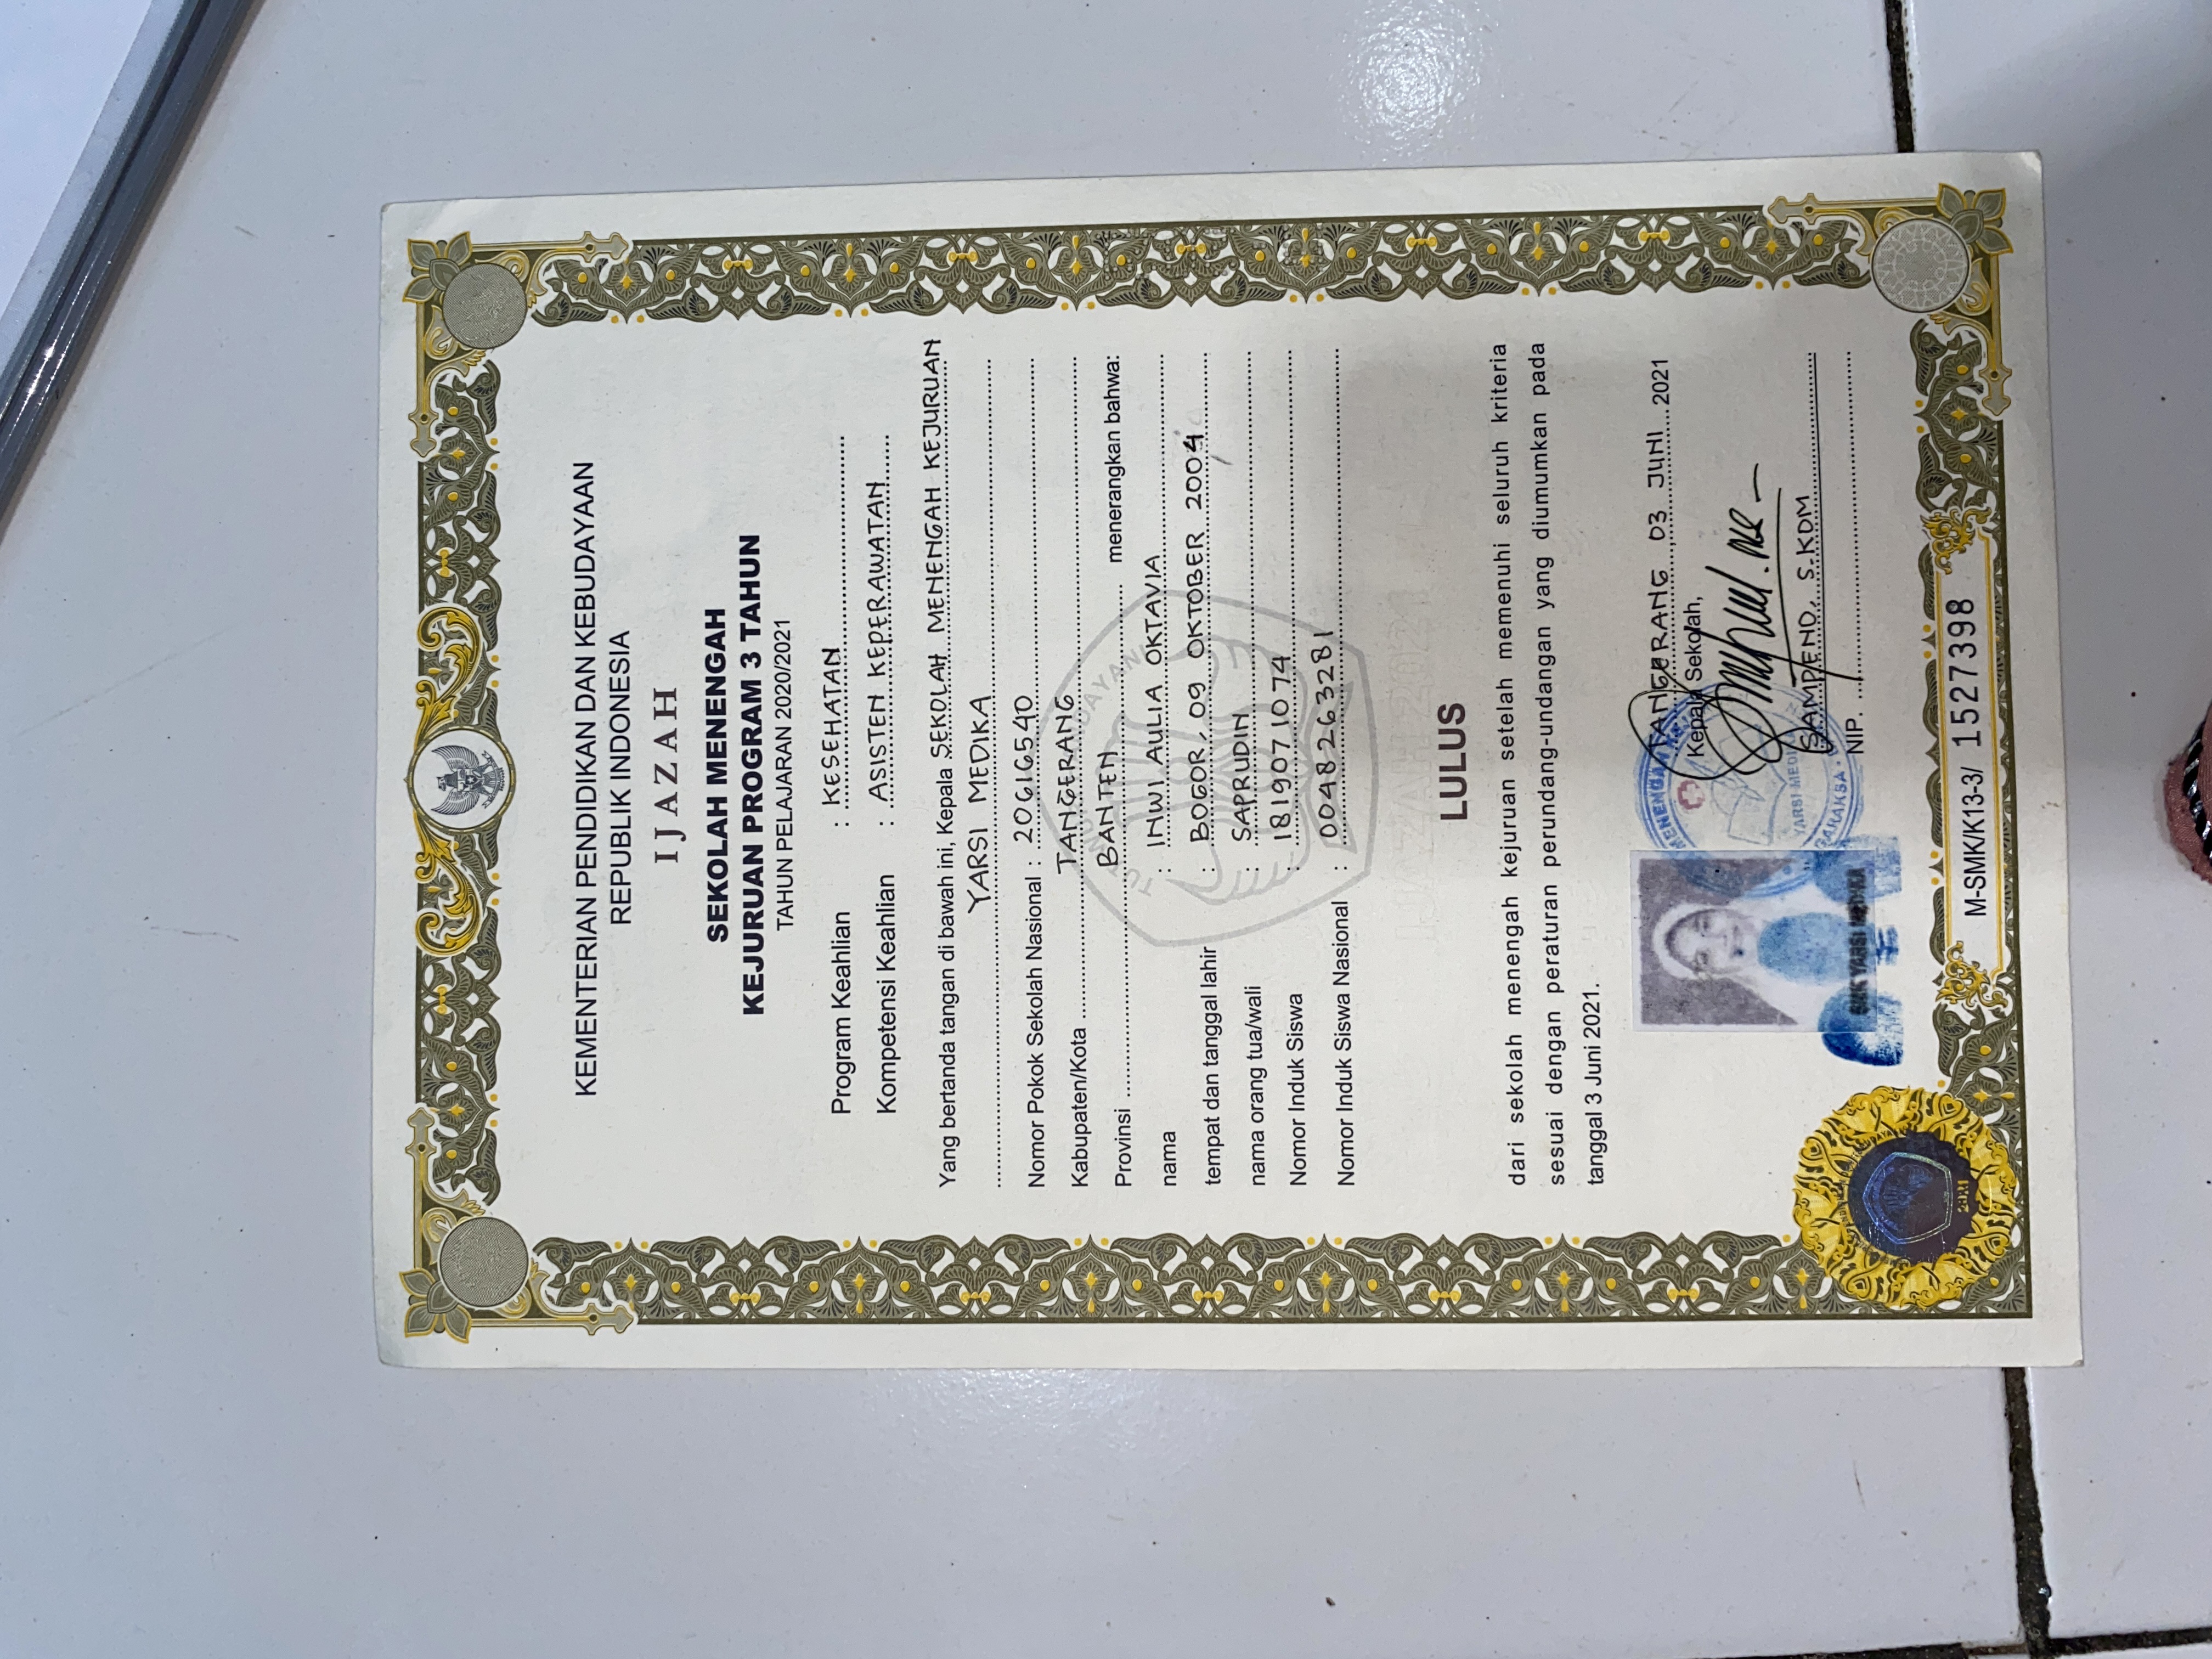 KEMENTERIAN PENDIDIKAN DAN KEBUDAYAAN
REPUBLIK INDONESIA
IJAZAH
SEKOLAH MENENGAH
KEJURUAN PROGRAM 3 TAHUN
TAHUN PELAJARAN 2020/2021
Program Keahlian : KESEHATAN
Kompetensi Keahlian : ASISTEN KEPERAWATAN
Yang bertanda tangan di bawah ini, Kepala SEKOLAH MENENGAH KEJURUAN
YARSI MEDIKA
Nomor Pokok Sekolah Nasional : 20616540
Kabupaten/Kota TANGERANG
Provinsi BANTEN menerangkan bahwa:
nama : INWI AULIA OKTAVIA
tempat dan tanggal lahir : BOGOR, 09 OKTOBER 2004
nama orang tua/wali : SAPRUDIN
Nomor Induk Siswa : 1819071074
Nomor Induk Siswa Nasional : 0048263281
IJAZAH 2021
LULUS
dari sekolah menengah kejuruan setelah memenuhi seluruh kriteria
sesuai dengan peraturan perundang-undangan yang diumumkan pada
tanggal 3 Juni 2021.
TANGERANG, 03 JUNI 2021
Kepala Sekolah,
MENENGAH
YARSI MEDIKA
SAMPENO, S.KOM
NIP.
SMK YARSI MEDIKA
2021
M-SMK/K13-3/ 1527398